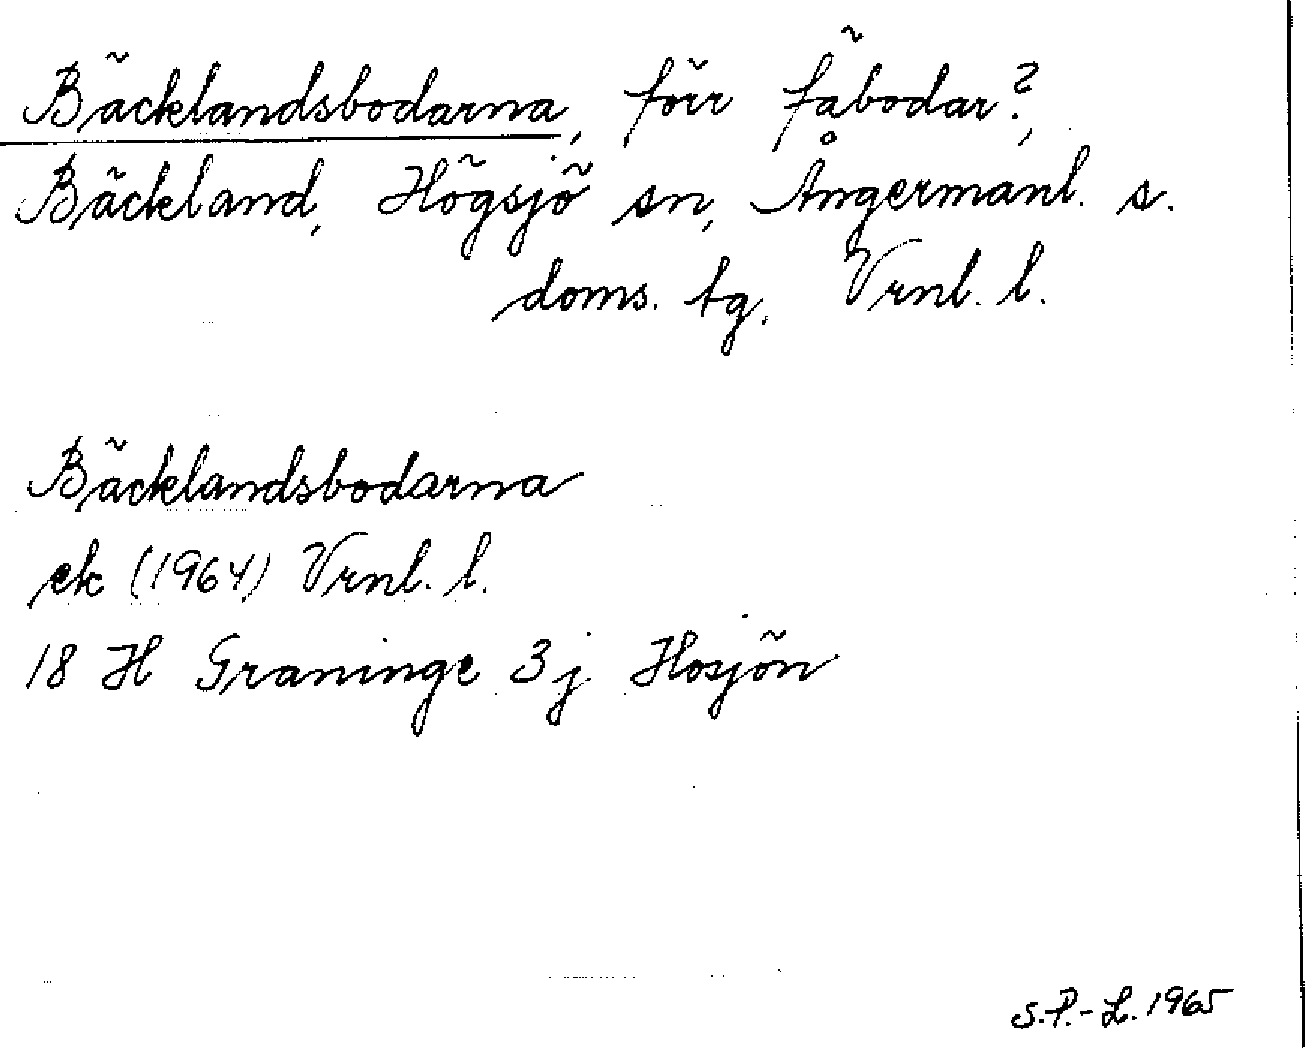 Bäcklandsbodarna, förr fäbodar?,
Bäckland, Högsjö sn, Ångermanl. s.
doms. tg. Vrnl. l.
Bäcklandsbodarna
ek (1964) Vrnl. l.
18 H Graninge 3j Hosjön
S.P.-L. 1965